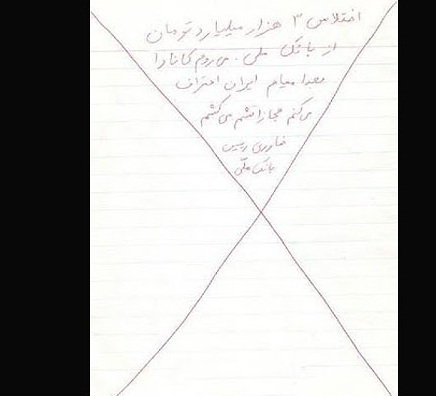 اختلاس ۳ هزار میلیارد تومان
از بانک ملی. می روم کانادا
بعدا میام ایران اعتراف
می کنم مجازاتشم می کشم
خاوری رییس
بانک ملی